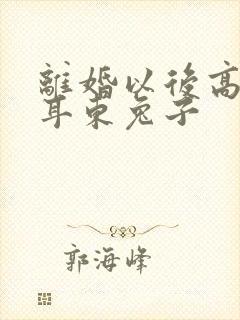 離婚以後高
耳東兔子
郭海峰